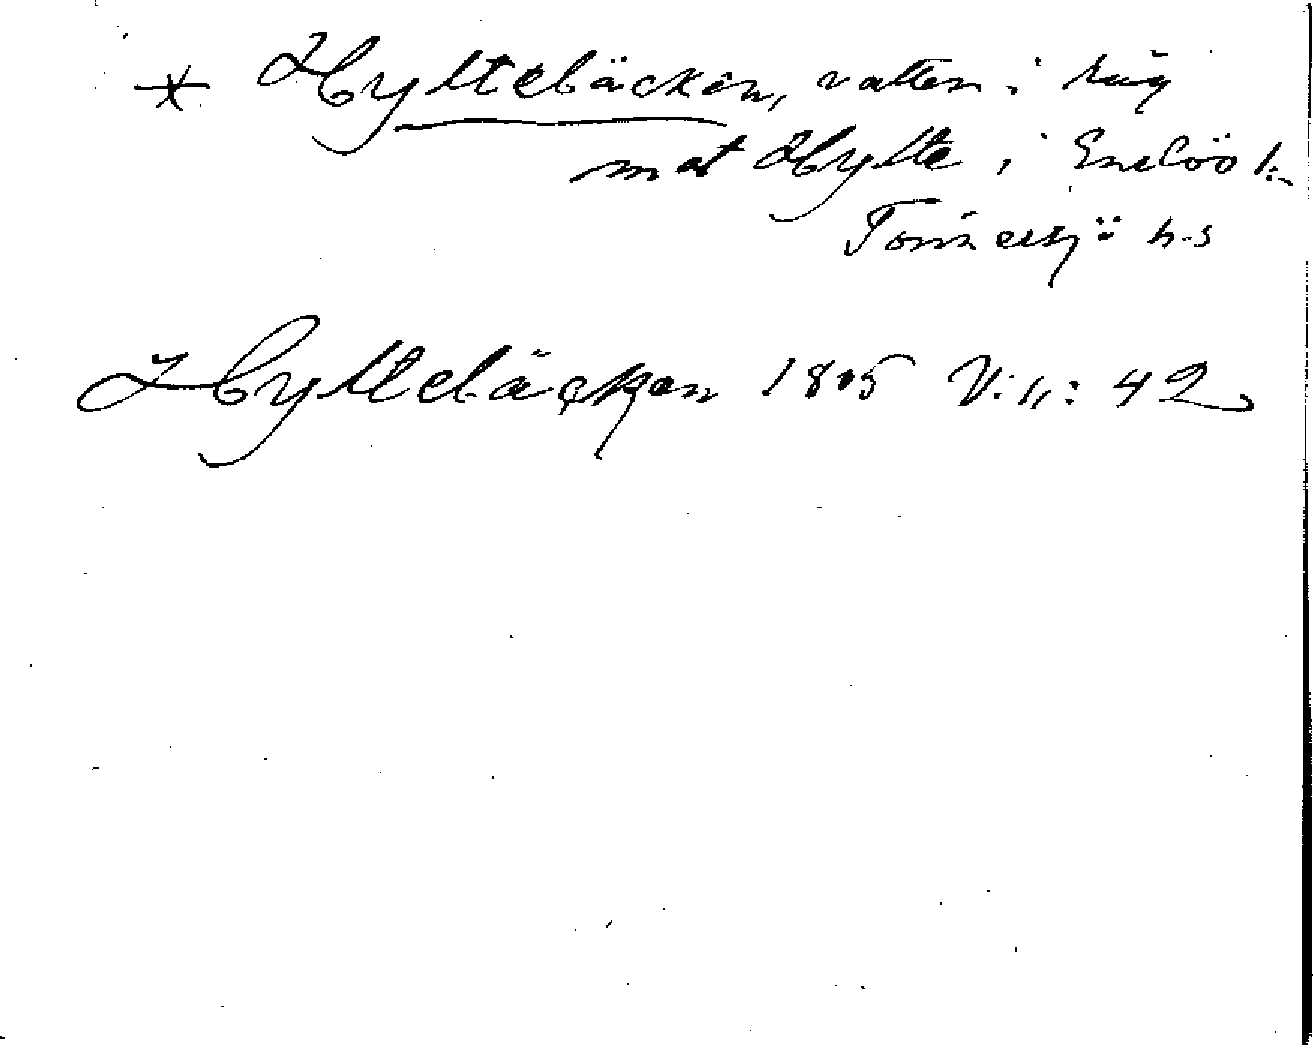 * Hyltebäcken, vatten i råg
mot Hylte i Enslöv s:n
Tönnersjö h-s
Hyltebäcken 1805 V: 42